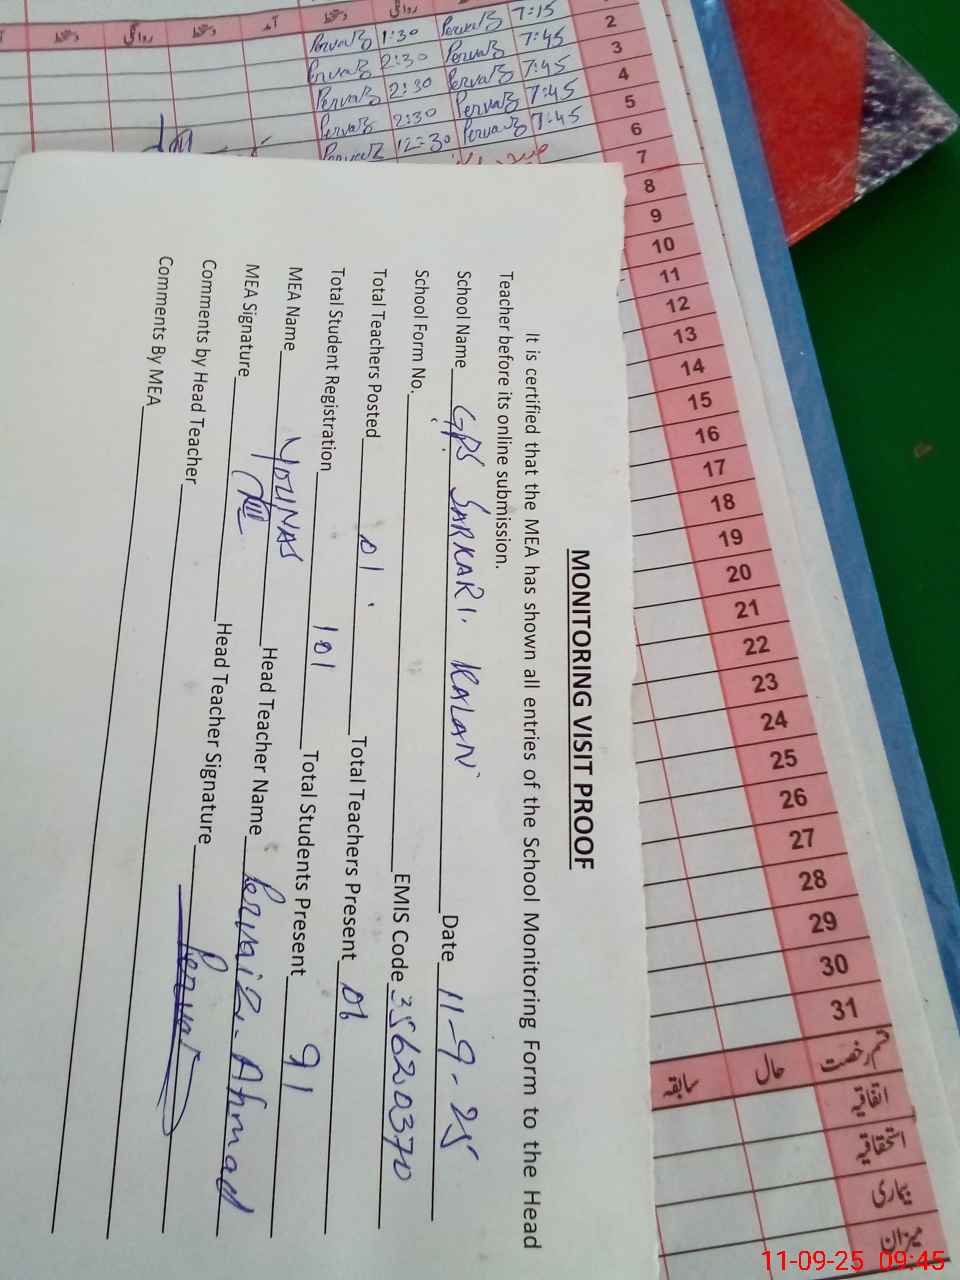 MONITORING VISIT PROOF
It is certified that the MEA has shown all entries of the School Monitoring Form to the Head
Teacher before its online submission.
School Name GPS SARKARI KALAN Date 11-9-25
School Form No. EMIS Code 35620370
Total Teachers Posted 01 Total Teachers Present
Total Student Registration 101 Total Students Present 91
MEA Name YOUNAS Head Teacher Name Pervaiz Ahmad
MEA Signature Head Teacher Signature Pervaiz
Comments by Head Teacher
Comments By MEA
آمد دستخط روانگی دستخط آمد دستخط روانگی
7:15 PervaiZ 1:30 PervaiZ
2 7:45 PervaiZ 2:30 PervaiZ
3 7:45 PervaiZ 2:30 PervaiZ
4 7:45 PervaiZ 2:30 PervaiZ
5 7:45 PervaiZ 12:30 PervaiZ
6
7
8
9
10
11
12
13
14
15
16
17
18
19
20
21
22
23
24
25
26
27
28
29
30
31
قسم رخصت حال سابقہ
اتفاقیہ
استحقاقیہ
بیماری
میزان
11-09-25 09:45